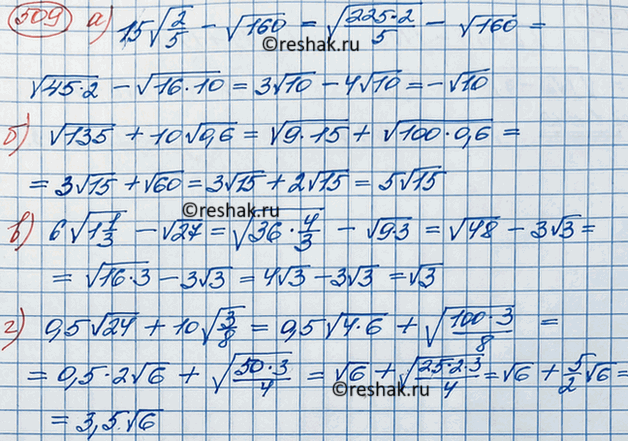 509 а) 15√(2/5) − √160 = √(225·2/5) − √160 =
©reshak.ru
√(45·2) − √(16·10) = 3√10 − 4√10 = −√10
б) √135 + 10√0,6 = √(9·15) + √(100·0,6) =
= 3√15 + √60 = 3√15 + 2√15 = 5√15
©reshak.ru
в) 6√(1 1/3) − √27 = √(36·4/3) − √(9·3) = √48 − 3√3 =
= √(16·3) − 3√3 = 4√3 − 3√3 = √3
г) 0,5√24 + 10√(3/8) = 0,5√(4·6) + √(100·3/8) =
= 0,5·2√6 + √(50·3/4) = √6 + √(25·2·3/4) = √6 + 5/2√6 =
©reshak.ru
= 3,5√6